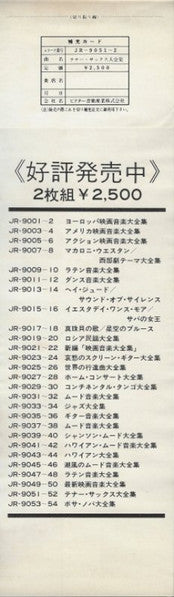 (切り取り線)
補充カード
レコード番号 JR-9051-2
曲名 テナー・サックス大全集
定価 ¥2,500
貴店名
月日
会社名 ビクター音楽産業株式会社
《好評発売中》
2枚組¥2,500
JR-9001-2 ヨーロッパ映画音楽大全集
JR-9003-4 アメリカ映画音楽大全集
JR-9005-6 アクション映画音楽大全集
JR-9007-8 マカロニ・ウエスタン/
西部劇テーマ大全集
JR-9009-10 ラテン音楽大全集
JR-9011-12 ダンス音楽大全集
JR-9013-14 ヘイ・ジュード/
サウンド・オブ・サイレンス
JR-9015-16 イエスタデイ・ワンス・モア/
サバの女王
JR-9017-18 真珠貝の歌/星空のブルース
JR-9019-20 ロシア民謡大全集
JR-9021-22 新編「映画音楽大全集」
JR-9023-24 哀愁のスクリーン・ギター大全集
JR-9025-26 世界の行進曲大全集
JR-9027-28 ホーム・コンサート大全集
JR-9029-30 コンチネンタル・タンゴ大全集
JR-9031-32 ムード音楽大全集
JR-9033-34 ジャズ大全集
JR-9035-36 ギター音楽大全集
JR-9037-38 ムード音楽大全集
JR-9039-40 シャンソン・ムード大全集
JR-9041-42 ハワイアン・ムード音楽大全集
JR-9043-44 ハワイアン大全集
JR-9045-46 潮風のムード音楽大全集
JR-9047-48 ラテン音楽大全集
JR-9049-50 最新映画音楽大全集
JR-9051-52 テナー・サックス大全集
JR-9053-54 ボサ・ノバ大全集